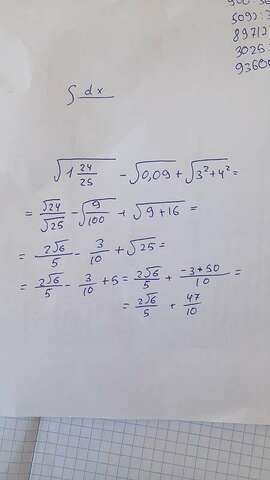 5092:3
89712
3025:
93600
∫ dx
√(1 24/25) - √0,09 + √(3²+4²) =
= √24/√25 - √(9/100) + √(9+16) =
= 2√6/5 - 3/10 + √25 =
= 2√6/5 - 3/10 + 5 = 2√6/5 + (-3+50)/10 =
= 2√6/5 + 47/10